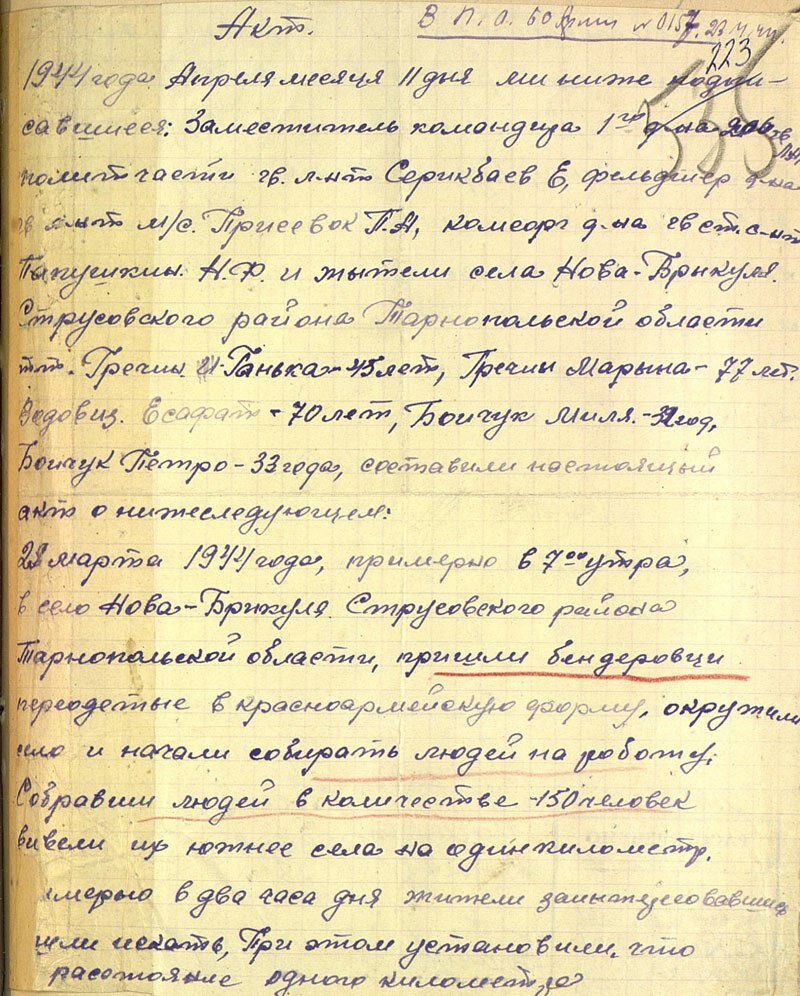 Акт. В П.О. 60 Армии №0157. 23.4.44.
223
1944 года Апреля месяца 11 дня ми ниже подпи-
савшиеся: Заместитель командира 1го д-на
политчасти гв. л-нт Серикбаев Е, фельдшер д-на
гв л-нт м/с. Присевок П.А, комсорг д-на гв ст. с-нт
Папушкин. Н.Ф. и жытели села Нова-Брыкуля.
Струсовского района Тарнопольской области
тт. Гречин Ганька - 45 лет, Гречин Марына - 77 лет.
Есафат - 70 лет, Боичук Миля. - год,
Боичук Петро - 33 года, составили настоящий
акт о нижеследующем:
28 марта 1944 года, примерно в 7 00 утра,
в село Нова-Брикуля Струсовского района
Тарнопольской области, пришли бендеровци
переодетые в красноармейскую форму, окружили
село и начали собирать людей на роботу.
Собравши людей в количестве - 150 человек
вивели их южнее села на один километр.
имерно в два часа дня жители заинтересовавшись
шли искать, При этом установили, что
расстояние одного километра